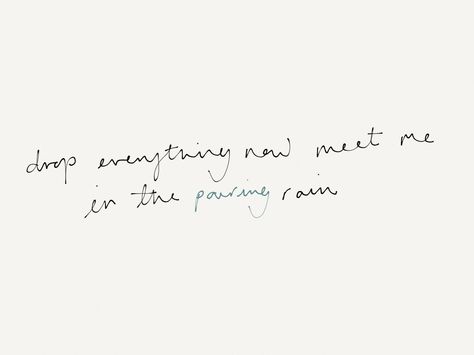 drop everything now meet me
in the pouring rain